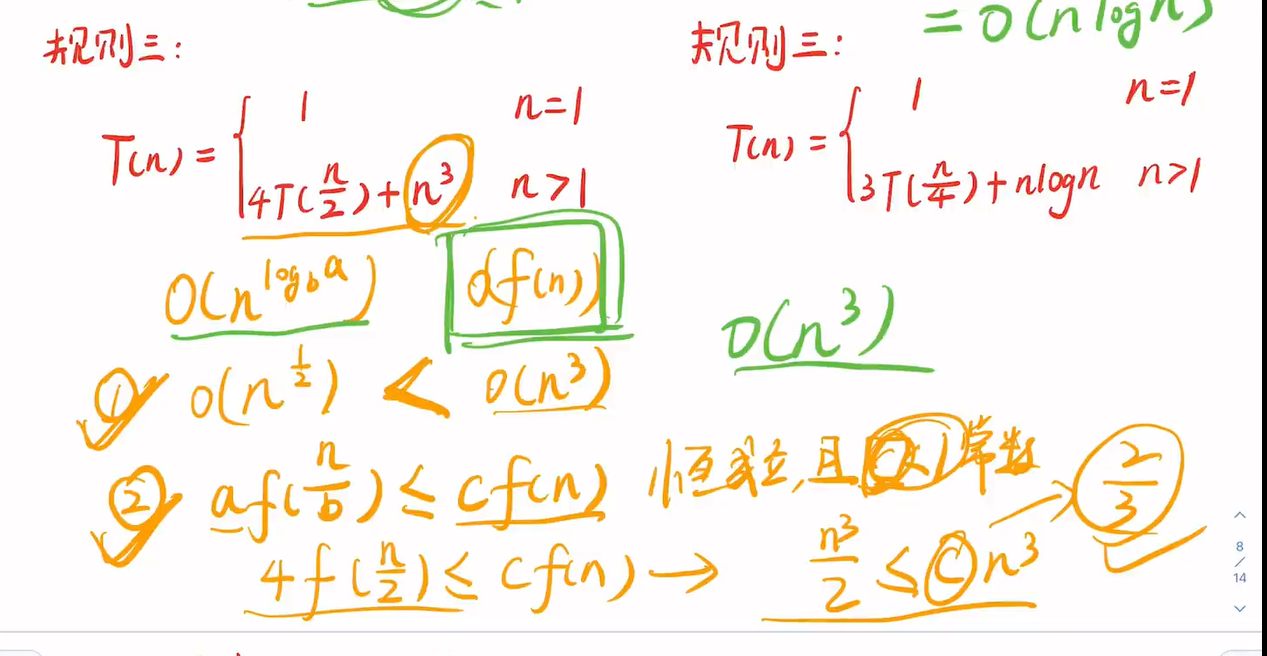 = O(n log n)
规则三:
T(n) = { 1 n=1
4T(n/2) + n³ n>1
O(n^{log_b a}) df(n)
① O(n^{1/2}) < O(n³)
② af(n/b) ≤ cf(n) 恒成立, 且 c<1 常数
4f(n/2) ≤ cf(n) → n³/2 ≤ cn³ → 2/3
规则三:
T(n) = { 1 n=1
3T(n/4) + nlogn n>1
O(n³)
8
/
14